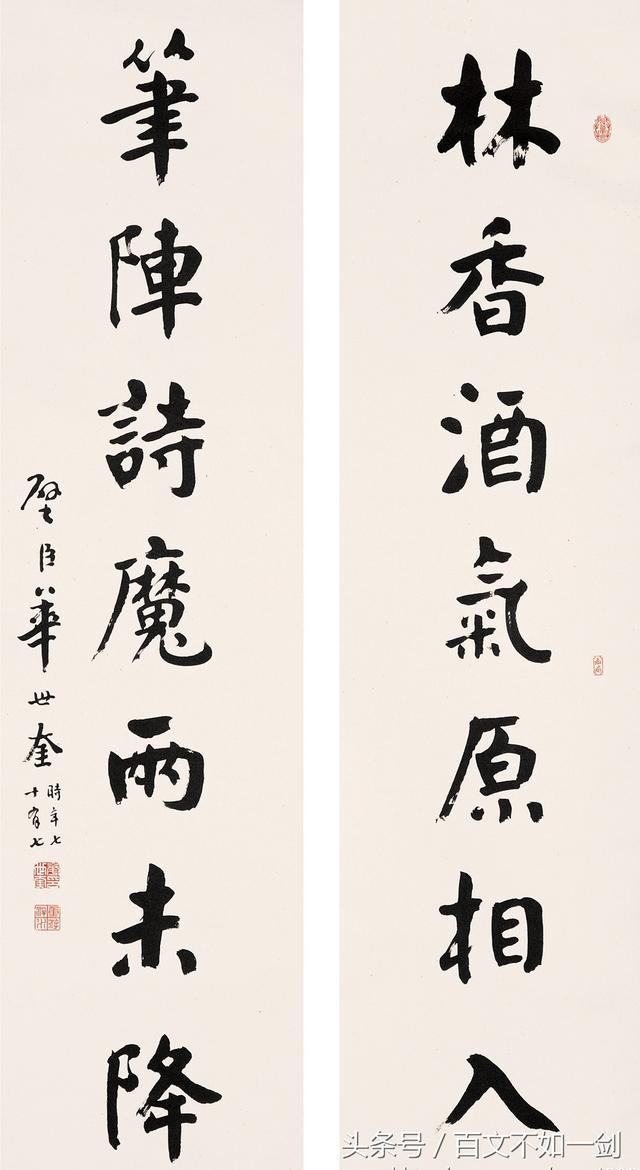 林香酒氣原相入
筆陣詩魔兩未降
璧臣華世奎
時年七
十有七
头条号 / 百文不如一剑